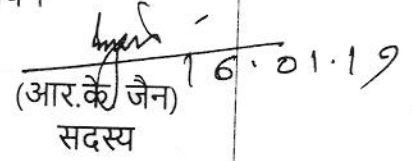 16.01.19
(आर.के जैन)
सदस्य